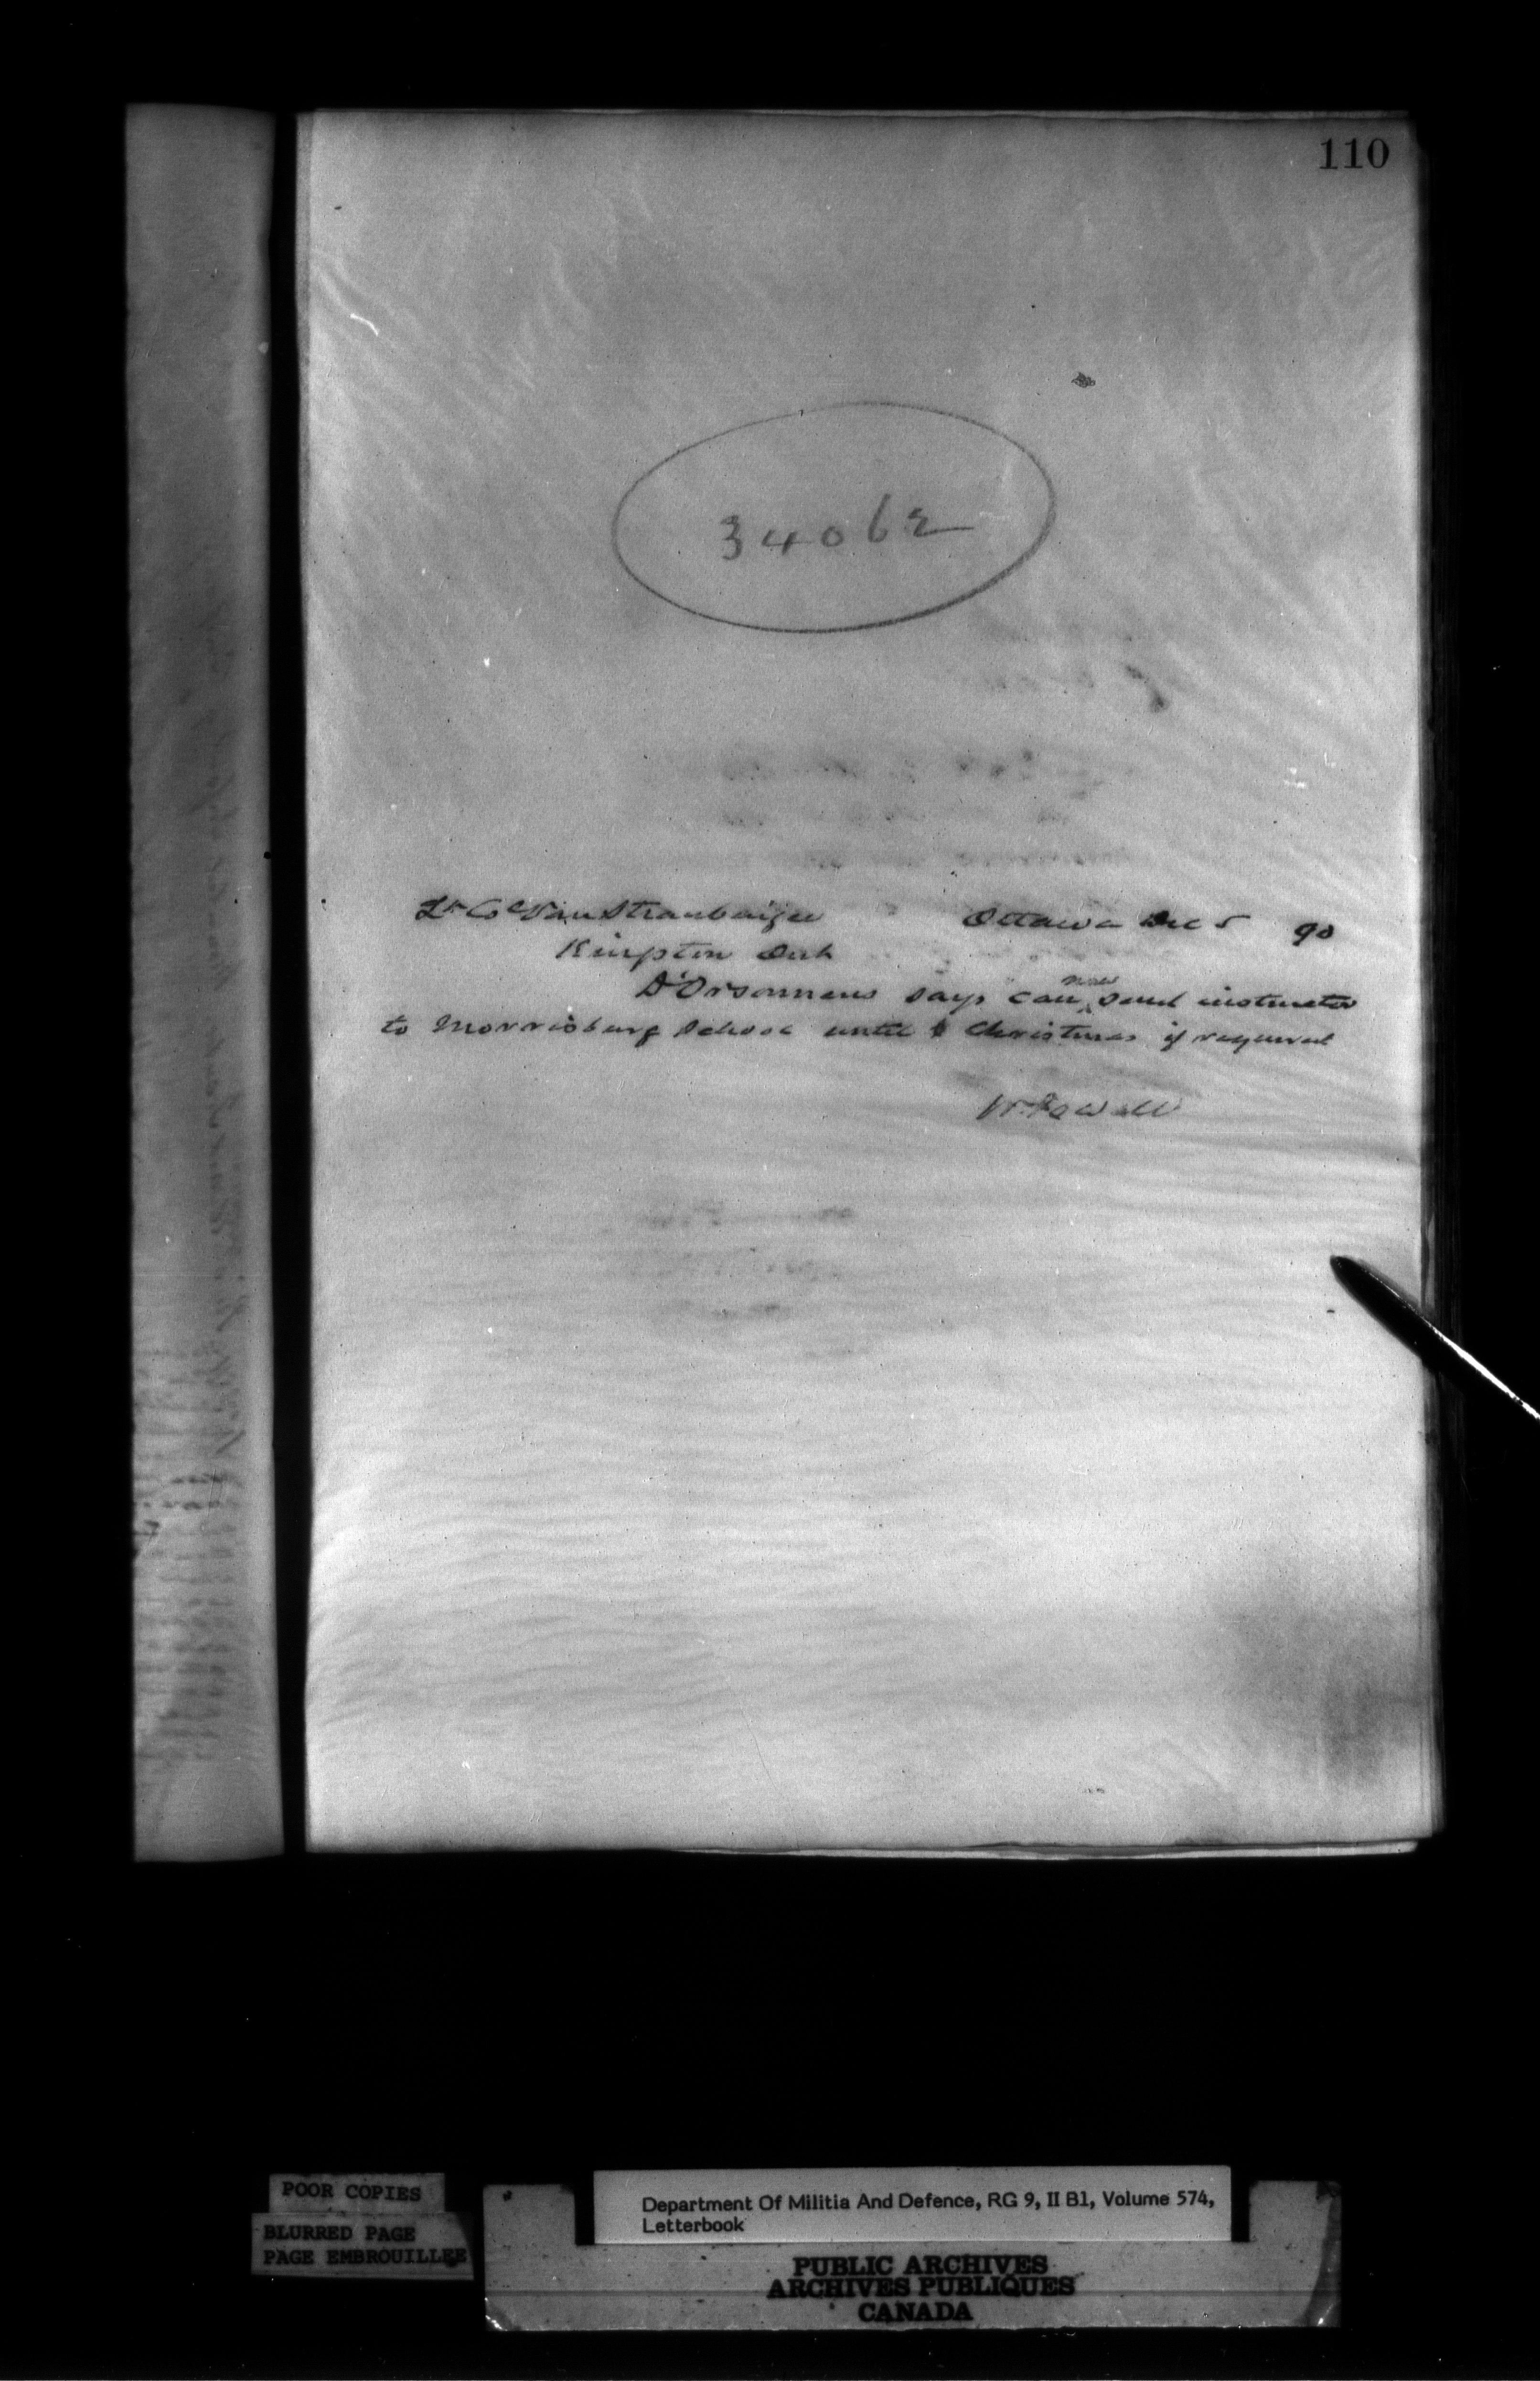 110
34062
Lt Col Van Straubenzee Ottawa Dec 5 90
Kingston Ont
D'Orsonnens says can now send instructor
to Morrisburg School until Christmas if required
W. Powell
POOR COPIES
BLURRED PAGE
PAGE EMBROUILLEE
Department Of Militia And Defence, RG 9, II B1, Volume 574,
Letterbook
PUBLIC ARCHIVES
ARCHIVES PUBLIQUES
CANADA